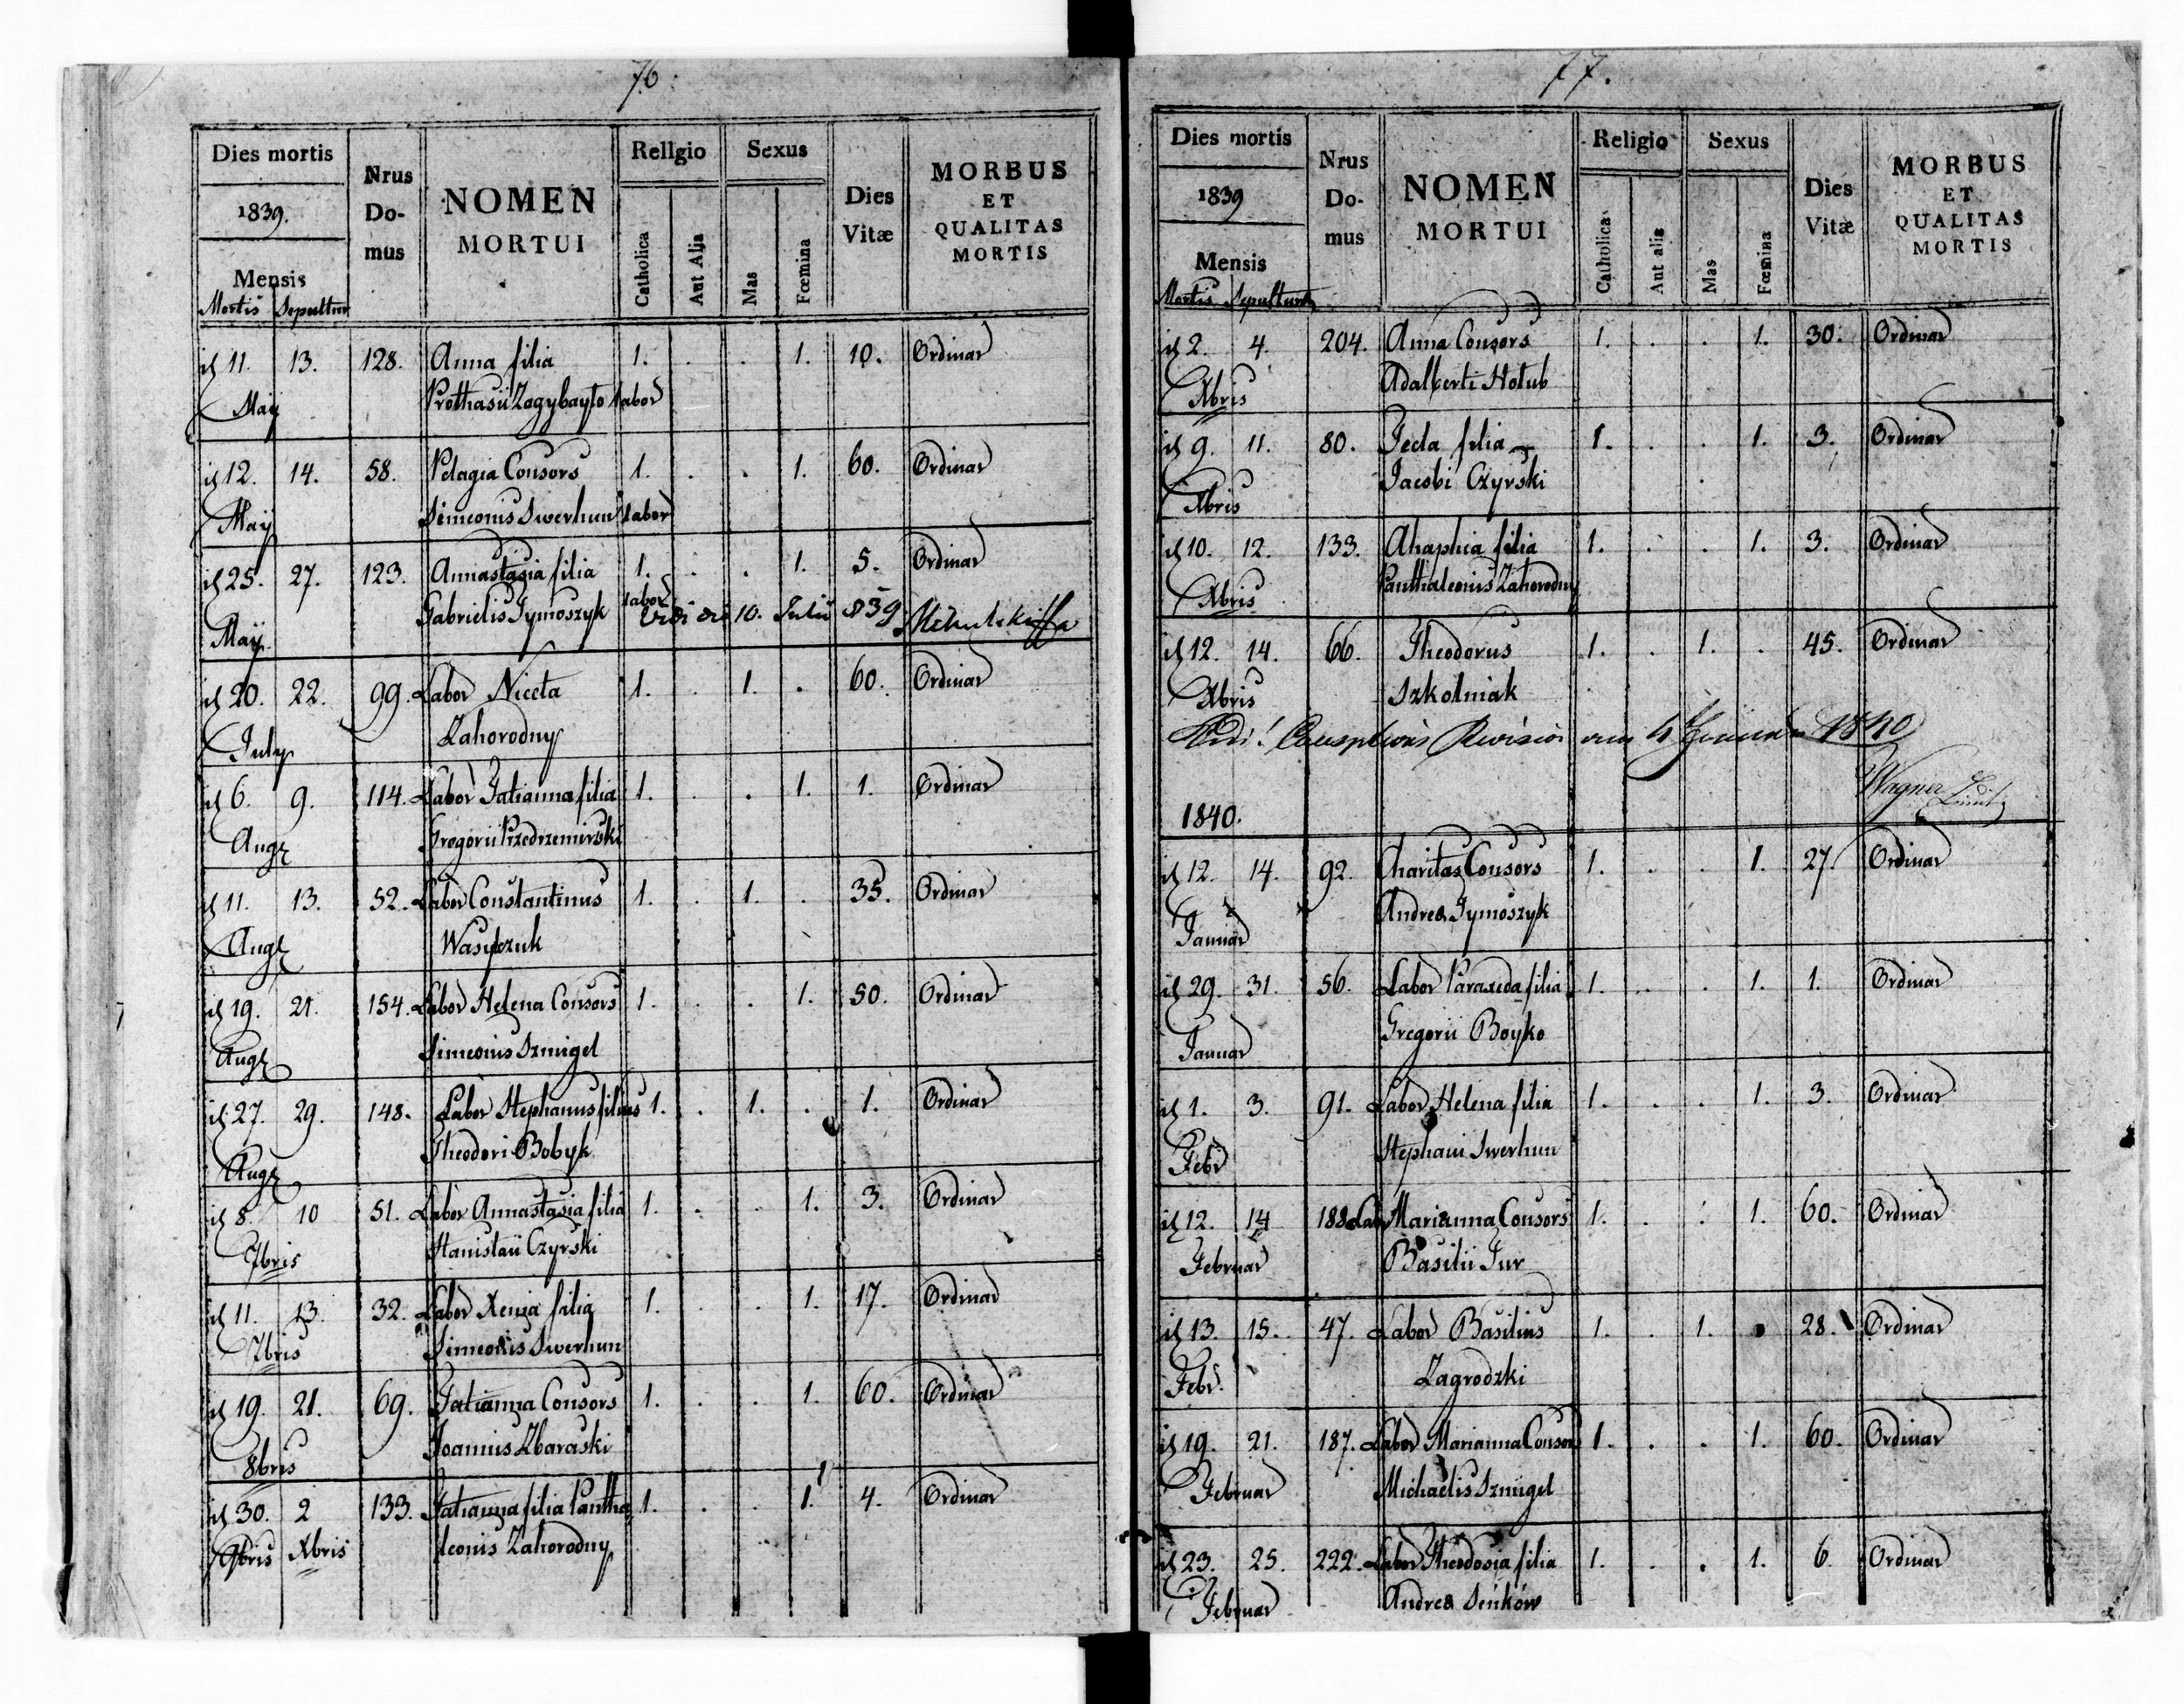 76.
Dies mortis
1839.
Mensis
Mortis Sepultur
Nrus Do- mus
NOMEN
MORTUI
Religio
Catholica
Aut Alia
Sexus
Mas
Fœmina
Dies Vitæ
MORBUS
ET
QUALITAS
MORTIS
11. 13. 128. Anna filia 1. . . 1. 10. Ordinar
May Prothasii Zagybayło Labor
12. 14. 58. Pelagia Consors 1. . . 1. 60. Ordinar
May Simeonis Swerhun Labor
25. 27. 123. Annastasia filia 1. . . 1. 5. Ordinar
May Gabrielis Tymoszyk Labor
Vidi 10. Julii 839
20. 22. 99. Labor Niceta 1. . 1. . 60. Ordinar
July Zahorodny
6. 9. 114. Labor Tatianna filia 1. . . 1. 1. Ordinar
Aug Gregorii Przedrzemirski
11. 13. 52. Labor Constantinus 1. . 1. . 35. Ordinar
Aug Wasylczuk
19. 21. 154. Labor Helena Consors 1. . . 1. 50. Ordinar
Aug Simeonis Szmigel
27. 29. 148. Labor Stephanus filius 1. . 1. . 1. Ordinar
Aug Theodori Bobyk
8. 10 51. Labor Annastasia filia 1. . . 1. 3. Ordinar
7bris Stanislaii Czyrski
11. 13. 32. Labor Xenia filia 1. . . 1. 17. Ordinar
7bris Simeonis Swerhun
19. 21. 69. Tatianna Consors 1. . . 1. 60. Ordinar
8bris Joannis Zbaraski
30. 2 133. Tatianna filia Pantha 1. . . 1. 4. Ordinar
9bris Xbris leonis Zahorodny
77.
Dies mortis
1839
Mensis
Mortis Sepultura
Nrus Do- mus
NOMEN
MORTUI
Religio
Catholica
Aut alia
Sexus
Mas
Fœmina
Dies Vitæ
MORBUS
ET
QUALITAS
MORTIS
2. 4. 204. Anna Consors 1. . . 1. 30. Ordinar
Xbris Adalberti Hołub
9. 11. 80. Tecla filia 1. . . 1. 3. Ordinar
Xbris Jacobi Czyrski
10. 12. 133. Ahaphia filia 1. . . 1. 3. Ordinar
Xbris Panthaleonis Zahorodny
12. 14. 66. Theodorus 1. . 1. . 45. Ordinar
Xbris Szkolniak
Vidi! Conscriptions Revision am 1840
Wagner
1840.
12. 14. 92. Charitas Consors 1. . . 1. 27. Ordinar
Januar Andrea Tymoszyk
29. 31. 56. Labor Paraxeda filia 1. . . 1. 1. Ordinar
Januar Gregorii Boyko
1. 3. 91. Labor Helena filia 1. . . 1. 3. Ordinar
Febr Stephani Swerhun
12. 14 188 Labor Marianna Consors 1. . . 1. 60. Ordinar
Februar Basilii Jur
13. 15. 47. Labor Basilius 1. . 1. . 28. Ordinar
Febr. Zagrodzki
19. 21. 187. Labor Marianna Consors 1. . . 1. 60. Ordinar
Februar Michaelis Szmigel
23. 25. 222. Labor Theodosia filia 1. . . 1. 6. Ordinar
Februar Andrea Seńków